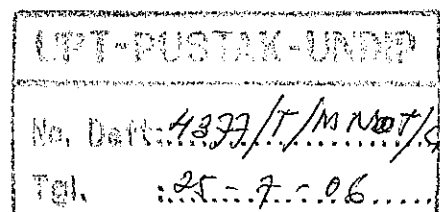 UPT-PUSTAK-UNDIP
No. Daft: 4377/T/MNOT/C
Tgl. : 25 - 7 - 06